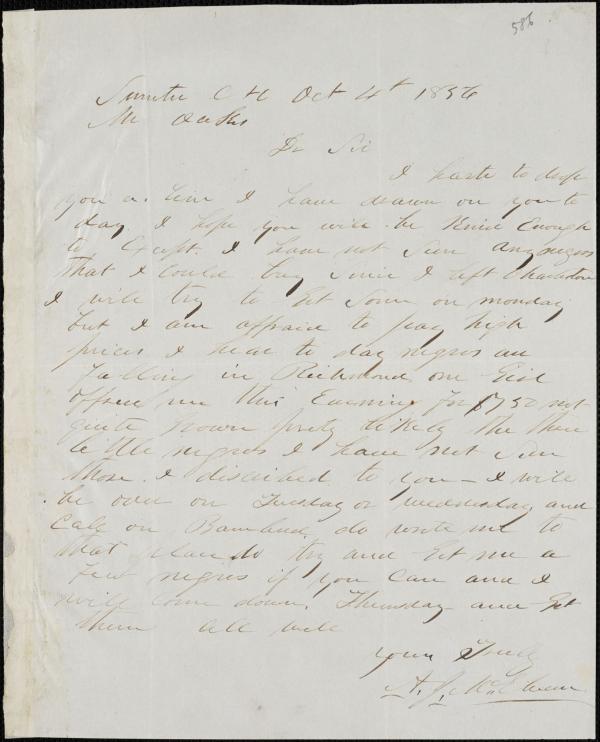 586
Sumter C H Oct 4th 1856
Mr Oakes
Dr Sir
I haste to drop
you a line I have drawn on you to
day I hope you will be Kind Enough
to Except. I have not Seen any negros
that I Could buy Since I left Charleston
I will try to Get Some on monday
but I am affraid to pay high
prices I hear to day negros are
falling in Richmond one Girl
offered me this Evening for $750 not
quite Grown prety likely the three
little negros I have not Seen
those I discribed to you – I will
be over on Tuesday or Wednesday and
Call on do write me to
that place do try and Get me a
Few negros if you Can and I
will Come down Thursday and Get
them all well
your Truly
A. J. McElveen